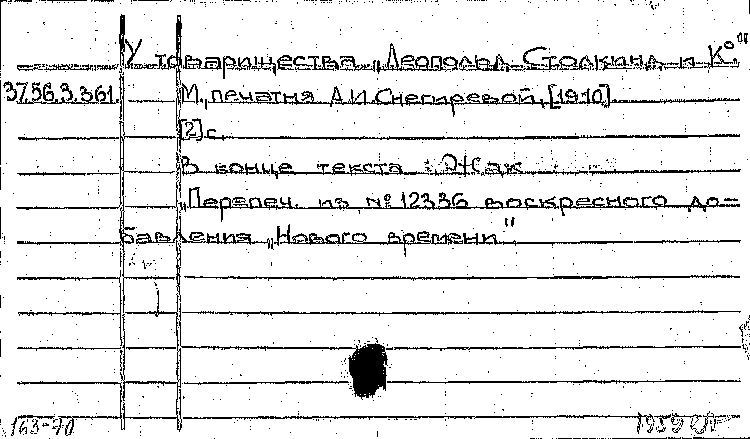 У товарищества „Леопольд Столкинд и К°"
37.56.3.361. М., печатня А.И.Снегиревой, [1910].
[2] с.
В конце текста :
„Перепеч. из № 12336 воскресного до-
бавления „Нового времени"
163-70